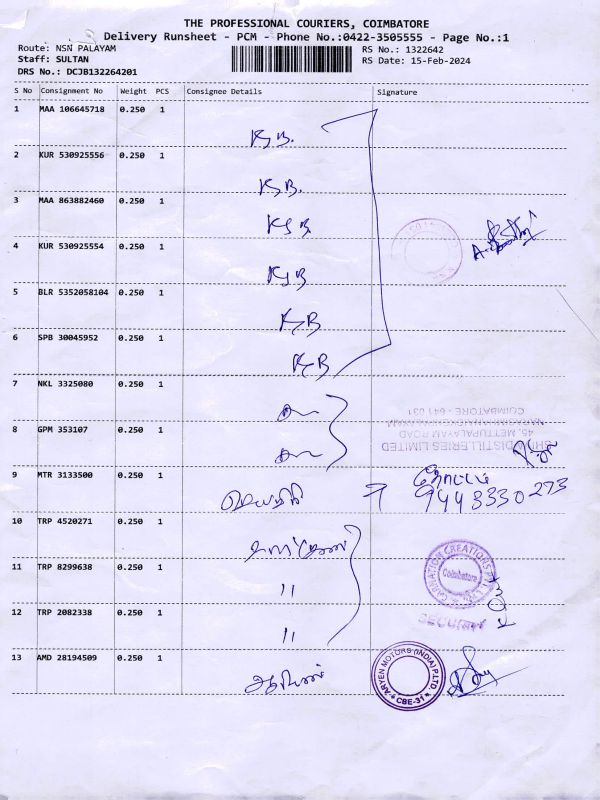 THE PROFESSIONAL COURIERS, COIMBATORE
Delivery Runsheet - PCM - Phone No.:0422-3505555 - Page No.:1
Route: NSN PALAYAM
RS No.: 1322642
Staff: SULTAN
RS Date: 15-Feb-2024
DRS No.: DCJB132264201
S No Consignment No Weight PCS Consignee Details Signature
1 MAA 106645718 0.250 1
KJB.
2 KUR 530925556 0.250 1
KJB.
3 MAA 863882460 0.250 1
KJB
4 KUR 530925554 0.250 1
KJB
5 BLR 5352058104 0.250 1
KJB
6 SPB 30045952 0.250 1
KJB
7 NKL 3325080 0.250 1
8 GPM 353107 0.250 1
SHIVA DISTILLERIES LIMITED
45, METTUPALAYAM ROAD
COIMBATORE - 641 031
9 MTR 3133500 0.250 1
9443330273
10 TRP 4520271 0.250 1
11 TRP 8299638 0.250 1
"
CARNATION CREATIONS PVT. LTD.
Coimbatore
12 TRP 2082338 0.250 1
"
SECURITY
13 AMD 28194509 0.250 1
ARYEN MOTORS (INDIA) P.LTD.
CBE-31